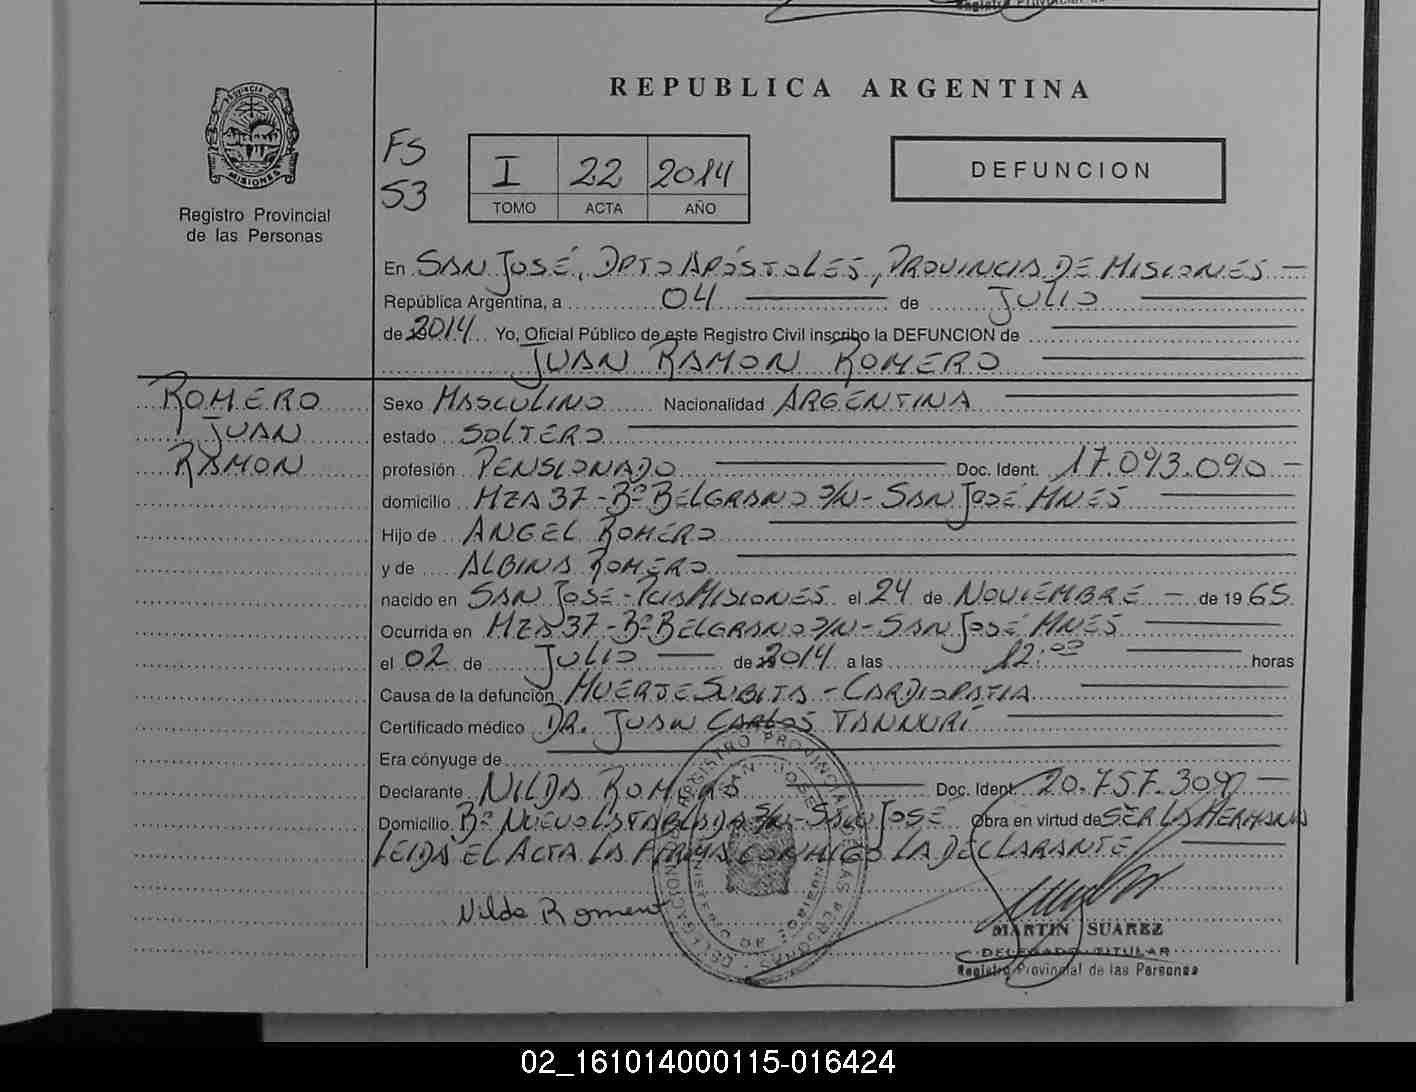 REPUBLICA ARGENTINA
PROVINCIA DE
MISIONES
Registro Provincial
de las Personas
FS
53
I 22 2014
TOMO ACTA AÑO
DEFUNCION
En SAN JOSÉ, DPTO APÓSTOLES, PROVINCIA DE MISIONES
República Argentina, a 04 de JULIO
de 2014 Yo, Oficial Público de este Registro Civil inscribo la DEFUNCION de
JUAN RAMON ROMERO
ROMERO
JUAN
RAMON
Sexo MASCULINO Nacionalidad ARGENTINA
estado SOLTERO
profesión PENSIONADO Doc. Ident. 17.093.090
domicilio MZA 37-Bº BELGRANO S/N-SAN JOSÉ MNES
Hijo de ANGEL ROMERO
y de ALBINA ROMERO
nacido en SAN JOSÉ-PCIA MISIONES el 24 de NOVIEMBRE de 1965
Ocurrida en MZA 37-Bº BELGRANO S/N-SAN JOSÉ MNES
el 02 de JULIO de 2014 a las 12:00 horas
Causa de la defunción MUERTE SUBITA-CARDIOPATIA
Certificado médico DR. JUAN CARLOS TANNURI
Era cónyuge de
Declarante NILDA ROMERO Doc. Ident. 20.757.309
Domicilio Bº NUEVO ESTABLADA S/N-SAN JOSE Obra en virtud de SER LA HERMANA
LEIDA EL ACTA LA FIRMA CONMIGO LA DECLARANTE
Nilda Romero
REGISTRO PROVINCIAL DE LAS PERSONAS
DELEGACION
SAN JOSE
MINISTERIO DE GOBIERNO
MARTIN SUAREZ
DELEGADO TITULAR
Registro Provincial de las Personas
02_161014000115-016424